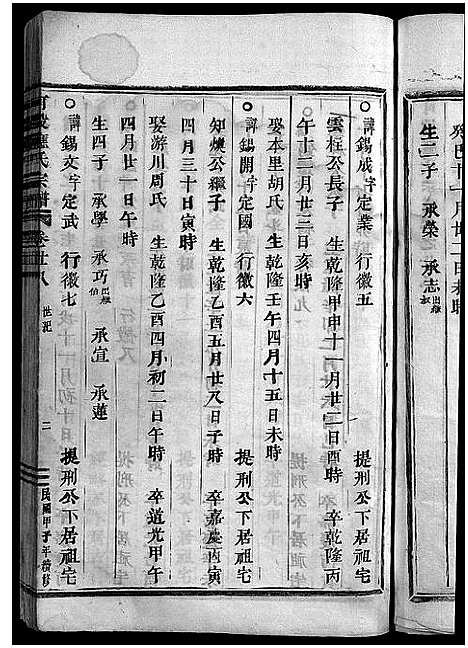 生二子 承榮 承志出繼
諱錫成字定業 行徽五 提刑公下居祖宅
雲柱公長子 生乾隆甲申十一月廿二日酉時 卒乾隆丙
午十二月廿三日亥時
娶本里胡氏 生乾隆壬午四月十五日未時
諱錫開字定國 行徽六 提刑公下居祖宅
知煥公繼子 生乾隆乙酉五月廿八日子時 卒嘉慶丙寅
四月三十日寅時
娶游川周氏 生乾隆乙酉四月初二日午時 卒道光甲午
四月廿一日午時
生四子 承學 承巧出繼伯 承宜 承蓮
諱錫文字定武 行徽七 提刑公下居祖宅
氏宗譜 卷廿八 世紀 二 民國甲子年續修